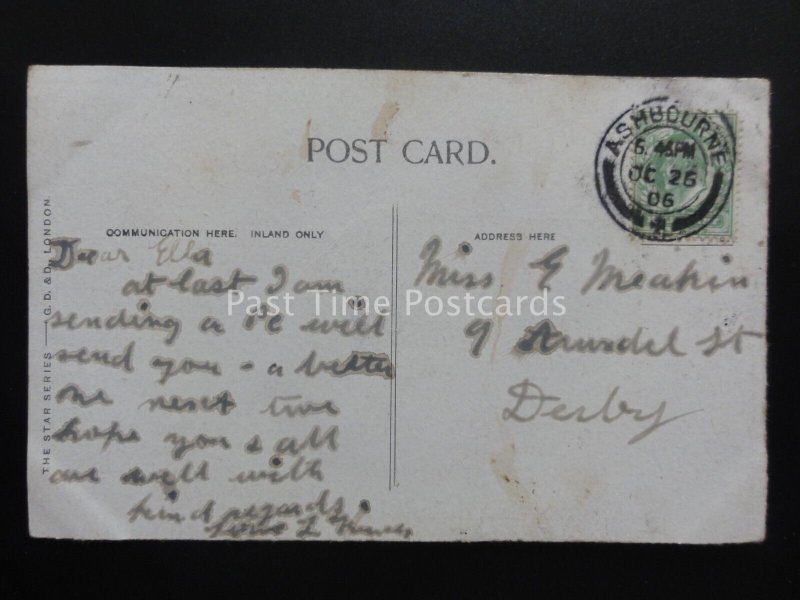 POST CARD.
COMMUNICATION HERE. INLAND ONLY
ADDRESS HERE
THE STAR SERIES — G. D. & D., LONDON.
ASHBOURNE
5.45PM
OC 26
06
Dear Ella
at last I am
sending a PC will
send you - a better
one next time
hope you & all
are well with
kind regards
Love L
Miss E Meakin
9 Arundel St
Derby
Past Time Postcards